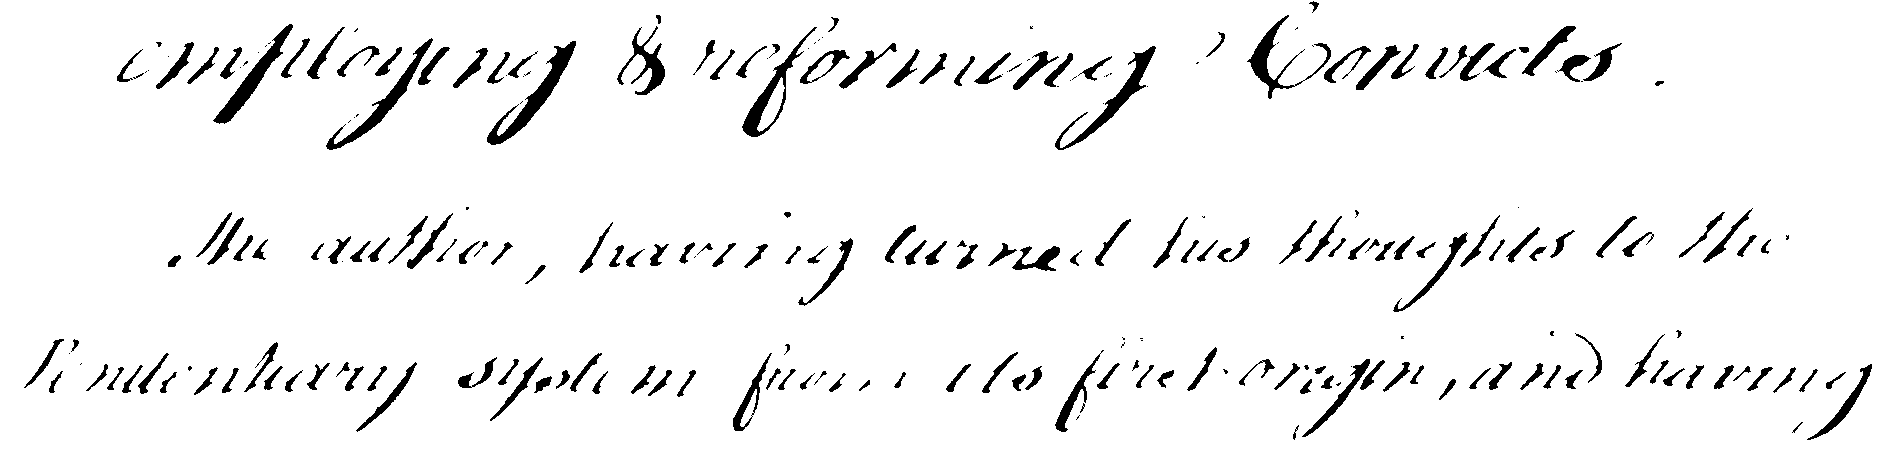 employing & reforming Convicts.
The author, having turned his thoughts to the
Penitentiary system from its first origin, and having